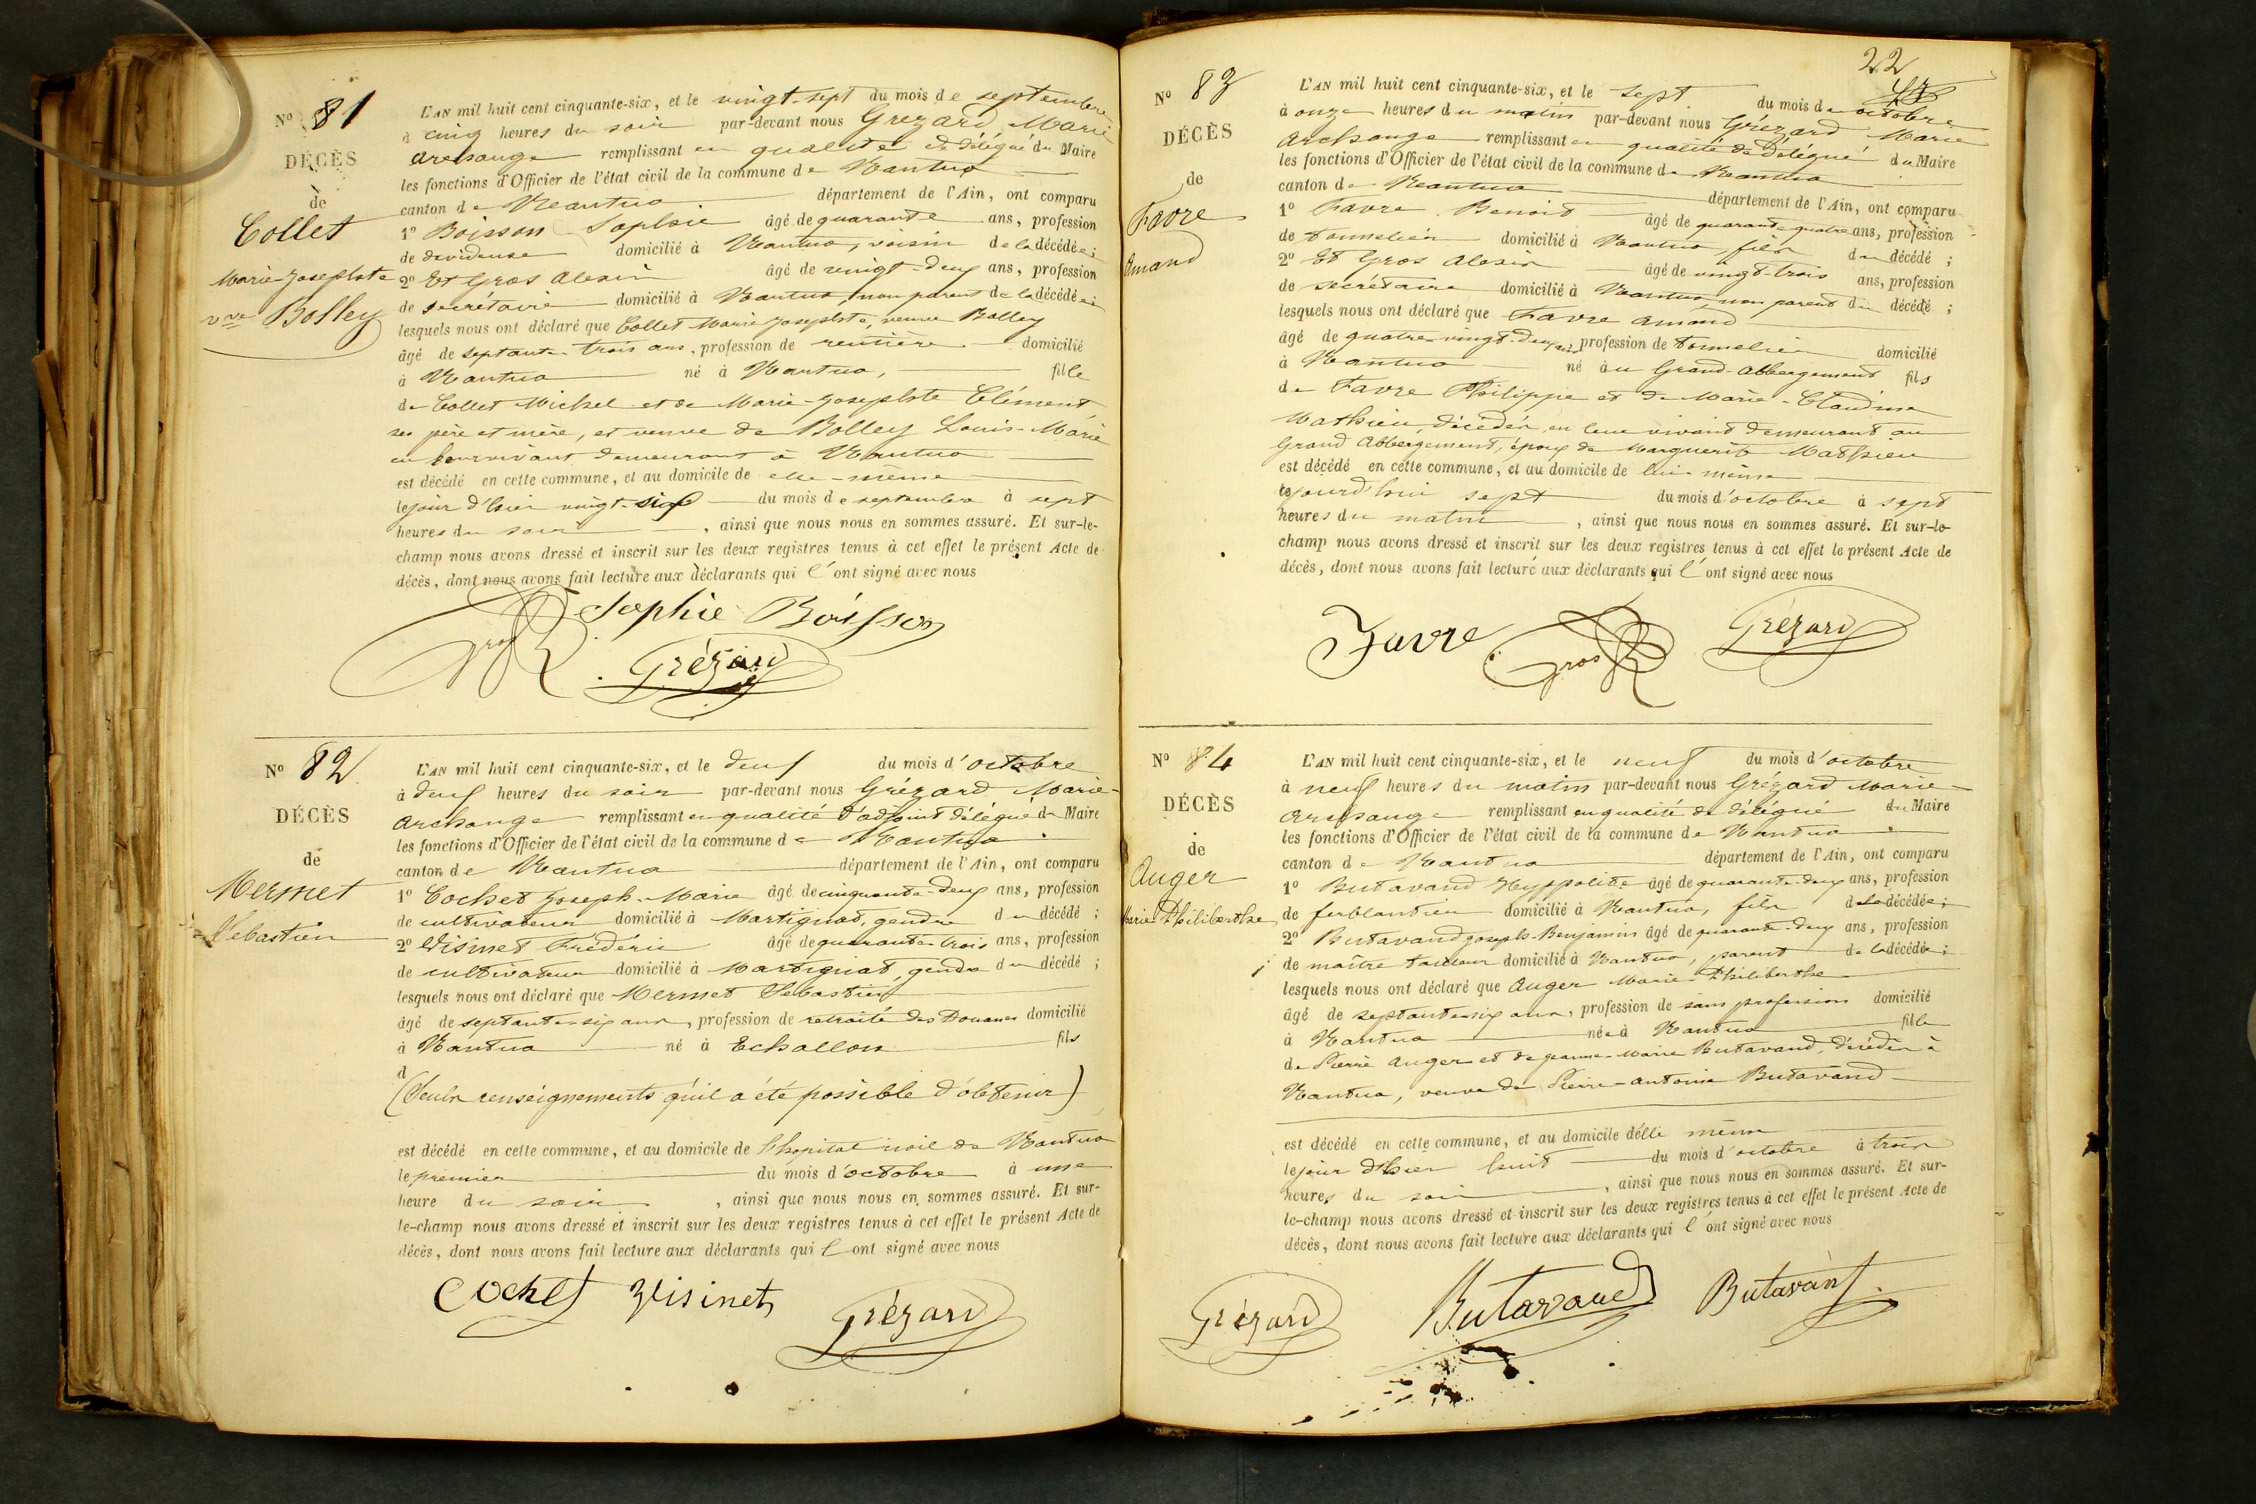 No 81
DÉCÈS
de
Collet
Marie-Josephte
vve Bolley
L'AN mil huit cent cinquante-six, et le vingt-sept du mois de septembre
à cinq heures du soir par-devant nous Grézard Marie
Archange remplissant en qualité de délégué du Maire
les fonctions d'Officier de l'état civil de la commune de Nantua
canton de Nantua département de l'Ain, ont comparu
1º Boisson Sophie âgé de quarante ans, profession
de devideuse domicilié à Nantua, voisin de la décédée;
2º Et Gros Alexis âgé de vingt-deux ans, profession
de secrétaire domicilié à Nantua, non parent de la décédée;
lesquels nous ont déclaré que Collet Marie Josephte, veuve Bolley
âgé de septante-trois ans, profession de rentière domicilié
à Nantua né à Nantua, fille
de Collet Michel et de Marie-Josephte Clément
ses père et mère, et veuve de Bolley Louis-Marie
en son vivant demeurant à Nantua
est décédé en cette commune, et au domicile de elle-même
le jour d'hier vingt-six du mois de septembre à sept
heures du soir, ainsi que nous nous en sommes assuré. Et sur-le-
champ nous avons dressé et inscrit sur les deux registres tenus à cet effet le présent Acte de
décès, dont nous avons fait lecture aux déclarants qui l'ont signé avec nous
Sophie Boisson
Gros
Grézard
No 82
DÉCÈS
de
Mermet
Sébastien
L'AN mil huit cent cinquante-six, et le deux du mois d'octobre
à deux heures du soir par-devant nous Grézard Marie-
Archange remplissant en qualité d'adjoint délégué du Maire
les fonctions d'Officier de l'état civil de la commune de Nantua
canton de Nantua département de l'Ain, ont comparu
1º Cochet Joseph-Marie âgé de cinquante-deux ans, profession
de cultivateur domicilié à Martignat, gendre du décédé;
2º Visinet Frédéric âgé de quarante-trois ans, profession
de cultivateur domicilié à Martignat, gendre du décédé;
lesquels nous ont déclaré que Mermet Sébastien
âgé de septante-six ans, profession de retraité des Douanes domicilié
à Nantua né à Echallon fils
d
(Seuls renseignements qu'il a été possible d'obtenir)
est décédé en cette commune, et au domicile de l'hopital civil de Nantua
le premier du mois d'octobre à une
heure du soir, ainsi que nous nous en sommes assuré. Et sur-
le-champ nous avons dressé et inscrit sur les deux registres tenus à cet effet le présent Acte de
décès, dont nous avons fait lecture aux déclarants qui l'ont signé avec nous
Cochet Visinet
Grézard
22
No 83
DÉCÈS
de
Favre
Amand
L'AN mil huit cent cinquante-six, et le sept du mois de octobre
à onze heures du matin par-devant nous Grézard Marie
Archange remplissant en qualité de délégué du Maire
les fonctions d'Officier de l'état civil de la commune de Nantua
canton de Nantua département de l'Ain, ont comparu
1º Favre Benoit âgé de quarante-quatre ans, profession
de tonnelier domicilié à Nantua, fils du décédé;
2º Et Gros Alexis âgé de vingt-trois ans, profession
de secrétaire domicilié à Nantua non parent du décédé;
lesquels nous ont déclaré que Favre Amand
âgé de quatre-vingt-deux ans profession de tonnelier domicilié
à Nantua né au Grand-Abbergement fils
de Favre Philippe et de Marie-Claudine
Mathieu, décédés, en leur vivant demeurant au
Grand Abbergement, époux de Marguerite Mathieu
est décédé en cette commune, et au domicile de lui-même
cejourd'hui sept du mois d'octobre à sept
heures du matin, ainsi que nous nous en sommes assuré. Et sur-le-
champ nous avons dressé et inscrit sur les deux registres tenus à cet effet le présent Acte de
décès, dont nous avons fait lecture aux déclarants qui l'ont signé avec nous
Favre
Gros
Grézard
No 84
DÉCÈS
de
Auger
Marie Philiberthe
L'AN mil huit cent cinquante-six, et le neuf du mois d'octobre
à neuf heures du matin par-devant nous Grézard Marie-
Archange remplissant en qualité de délégué du Maire
les fonctions d'Officier de l'état civil de la commune de Nantua
canton de Nantua département de l'Ain, ont comparu
1º Butavand Hyppolite âgé de quarante-deux ans, profession
de ferblantier domicilié à Nantua, fils de la décédée;
2º Butavand Joseph-Benjamin âgé de quarante-deux ans, profession
de maître tailleur domicilié à Nantua, parent de la décédée;
lesquels nous ont déclaré que Auger Marie-Philiberthe
âgé de septante-six ans, profession de sans profession domicilié
à Nantua née à Nantua fille
de Pierre Auger et de Jeanne-Marie Butavand, décédés à
Nantua, veuve de Pierre-Antoine Butavand
est décédé en cette commune, et au domicile d'elle même
le jour d'hier huit du mois d'octobre à trois
heures du soir, ainsi que nous nous en sommes assuré. Et sur-
le-champ nous avons dressé et inscrit sur les deux registres tenus à cet effet le présent Acte de
décès, dont nous avons fait lecture aux déclarants qui l'ont signé avec nous
Grézard Butavand Butavant